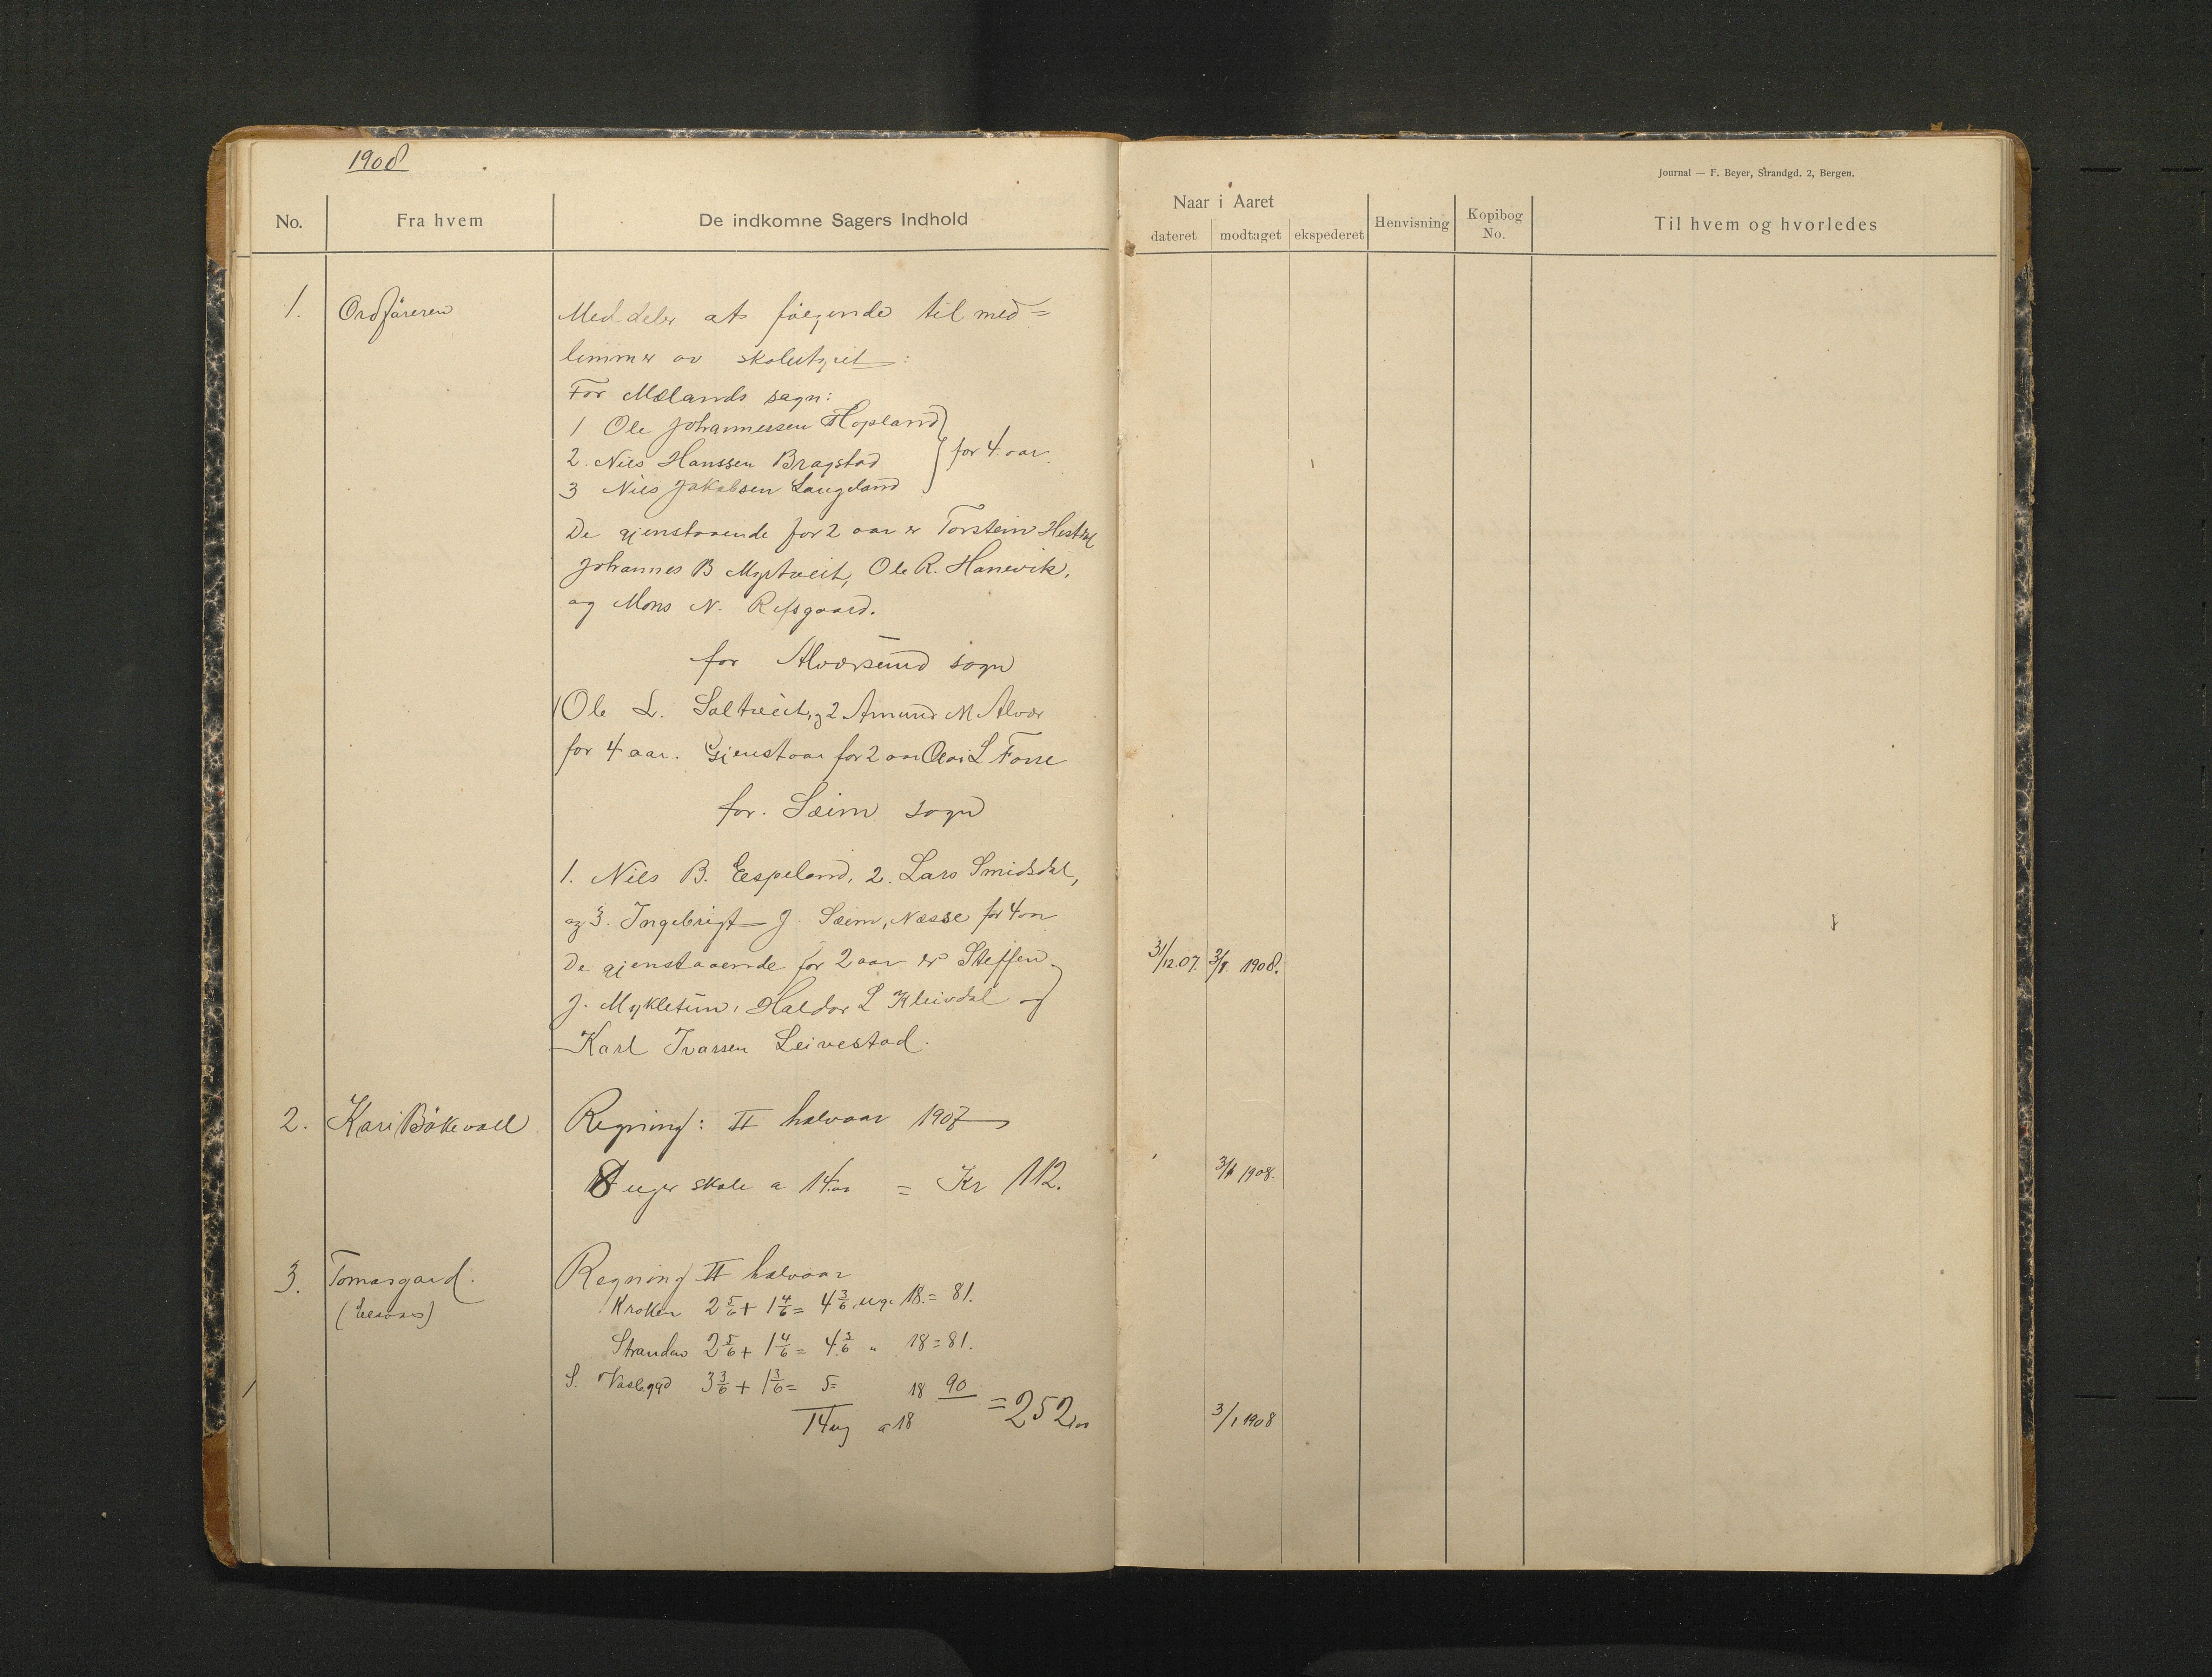 1908
Journal — F. Beyer, Strandgd. 2, Bergen.
No.
Fra hvem
De indkomne Sagers Indhold
Naar i Aaret
dateret
modtaget
ekspederet
Henvisning
Kopibog No.
Til hvem og hvorledes
1.
Ordføreren
Meddeler at følgende til med=
lemmer av skolestyret:
For Mælands sogn:
1 Ole Johannessen Hopland
2. Nils Hanssen Bragstad
for 4 aar.
3 Nils Jakobsen Langeland
De gjenstaaende for 2 aar er Torstein Hestdal
Johannes B Myrtveit, Ole R. Hanevik,
og Mons N. Refsgaard.
for Alversund sogn
1 Ole L. Saltveit, og 2 Amund M Alver
for 4 aar. Gjenstaar for 2 aar L Fosse
for. Seim sogn
1. Nils B. Espeland, 2. Lars Smidsdal,
og 3. Ingebrigt J. Seim, Næsse for 4 aar
De gjenstaaende for 2 aar er Steffen
31/12.07.
3/1. 1908.
J. Mykletun, Haldor L Kleivdal og
Karl Ivarsen Leivestad.
2.
Kari Bøkevoll
Regning: II halvaar 1907
8 uger skole a 14.00 = Kr 112.
3/1 1908.
3.
Tomasgard.
Regning II halvaar
Kroken 2 5/6 + 1 4/6 = 4 3/6 uge 18. = 81.
Stranden 2 5/6 + 1 4/6 = 4 3/6 " 18 = 81.
S. 3 3/6 + 1 3/6 = 5 = 18 90
14 ug a 18 = 252,00
3/1 1908